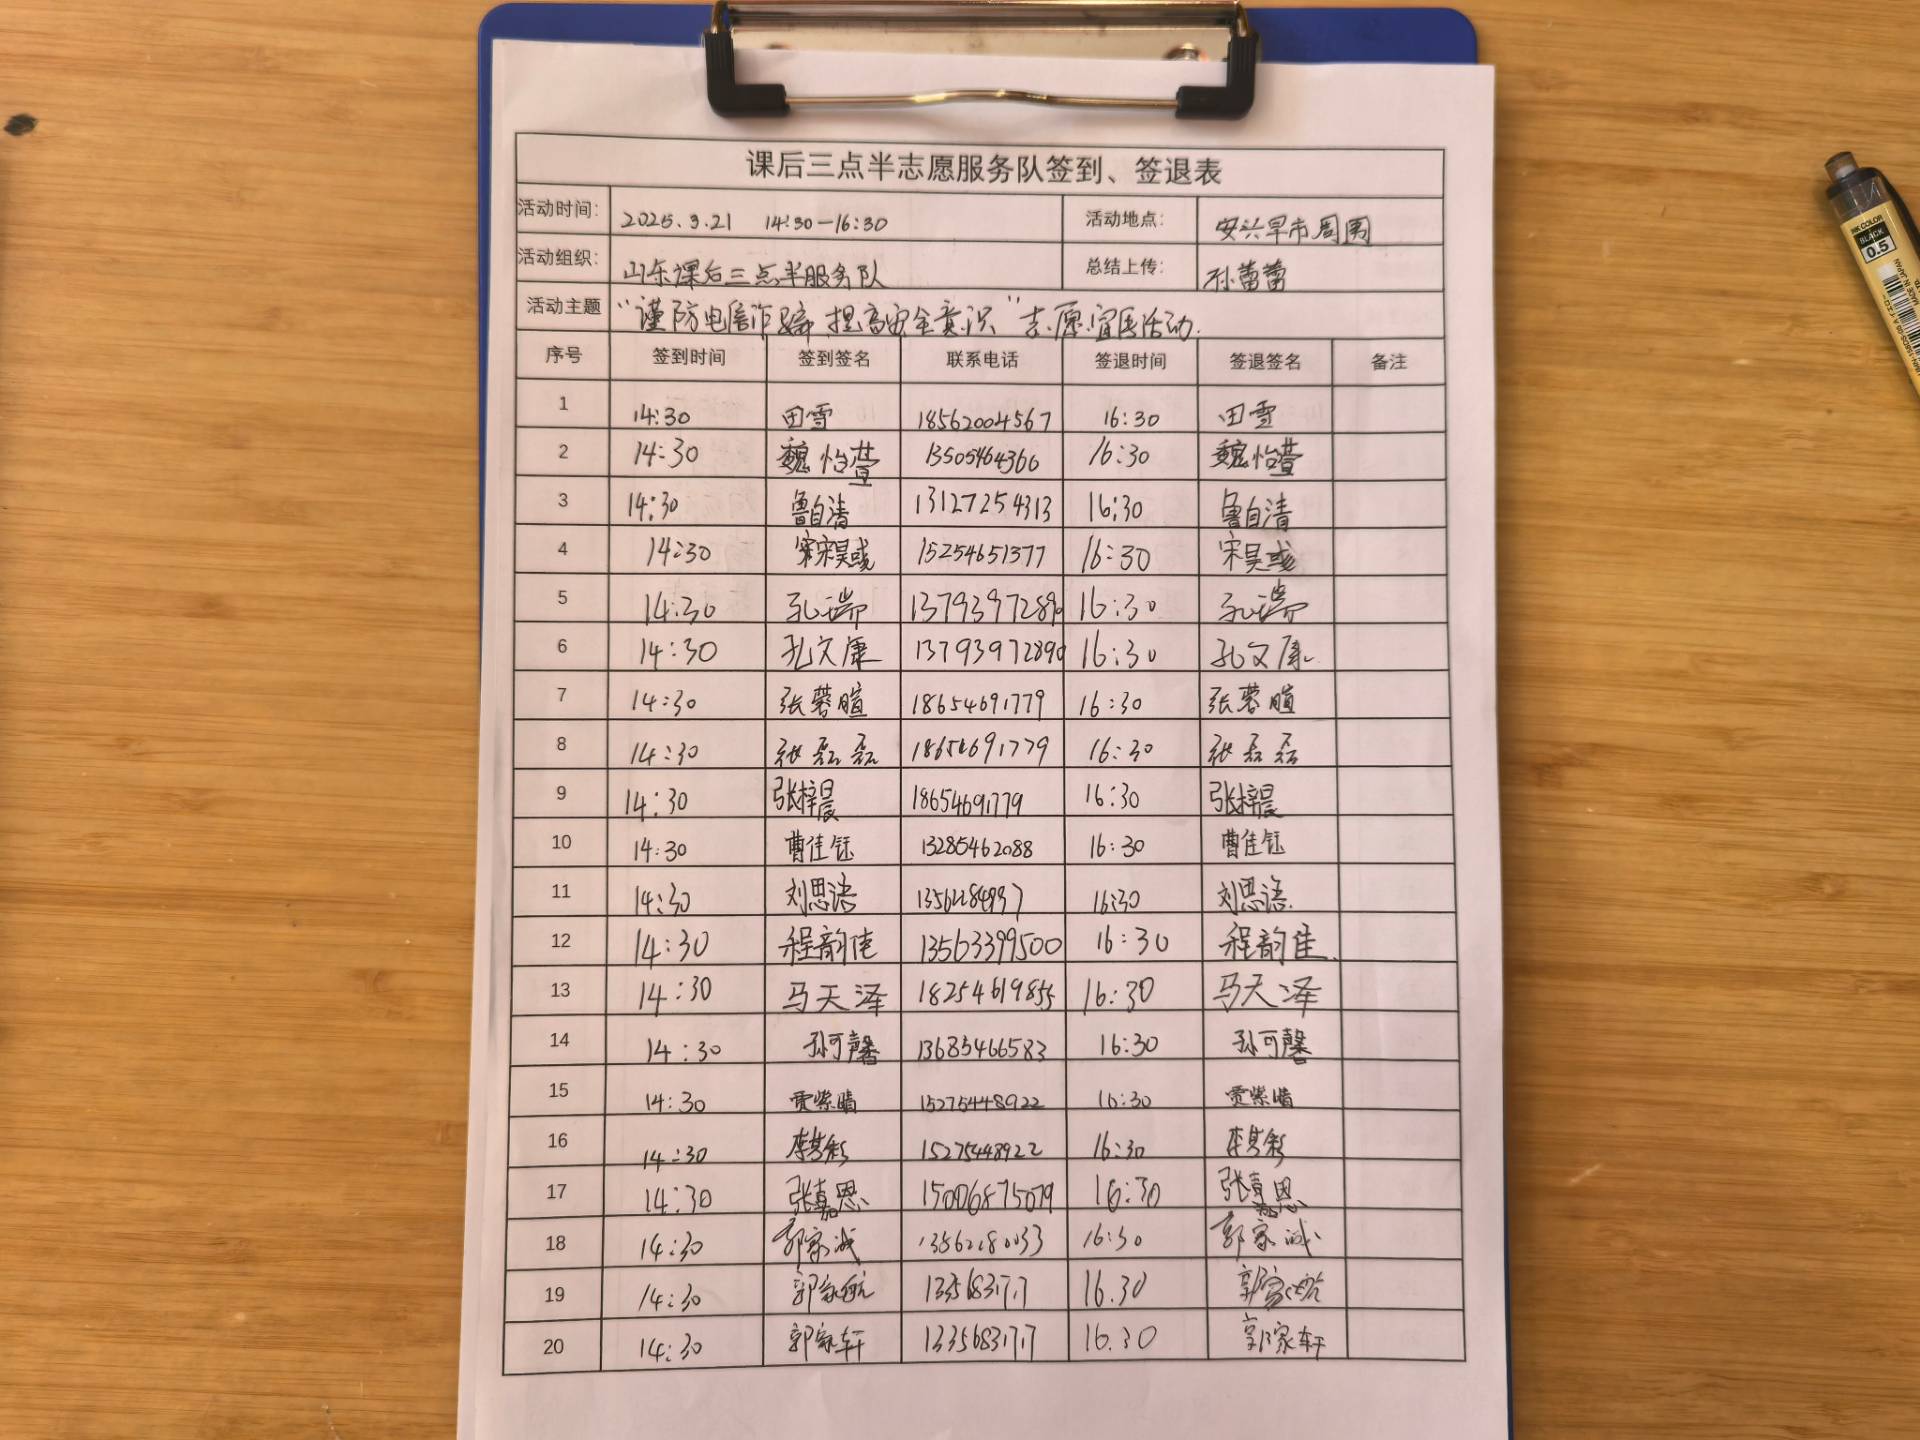 课后三点半志愿服务队签到、签退表
活动时间： 2025.3.21 14:30—16:30 活动地点： 安兴早市周围
活动组织： 山东课后三点半服务队 总结上传： 孙蕾蕾
活动主题 “谨防电信诈骗 提高安全意识”志愿宣传活动.
序号 签到时间 签到签名 联系电话 签退时间 签退签名 备注
1 14:30 田雪 18562004567 16:30 田雪
2 14:30 魏怡萱 13505464366 16:30 魏怡萱
3 14:30 鲁自清 13127254313 16:30 鲁自清
4 14:30 15254651377 16:30
5 14:30 孔瑞 13793972890 16:30 孔瑞
6 14:30 孔文康 13793972890 16:30 孔文康
7 14:30 张蓉暄 18654691779 16:30 张蓉暄
8 14:30 张磊磊 18654691779 16:30 张磊磊
9 14:30 张梓晨 18654691779 16:30 张梓晨
10 14:30 曹佳钰 13285462088 16:30 曹佳钰
11 14:30 刘思语 16:30 刘思语
12 14:30 程韵佳 13563399500 16:30 程韵佳
13 14:30 马天泽 18254619855 16:30 马天泽
14 14:30 孙可馨 13685466583 16:30 孙可馨
15 14:30 贾紫晴 15275448922 16:30 贾紫晴
16 14:30 15275448922 16:30
17 14:30 张嘉恩 15006875079 16:30 张嘉恩
18 14:30 郭家诚 16:30 郭家诚
19 14:30 郭家航 16.30 郭家航
20 14:30 郭家轩 16.30 郭家轩
BLACK
0.5
MADE IN JAPAN